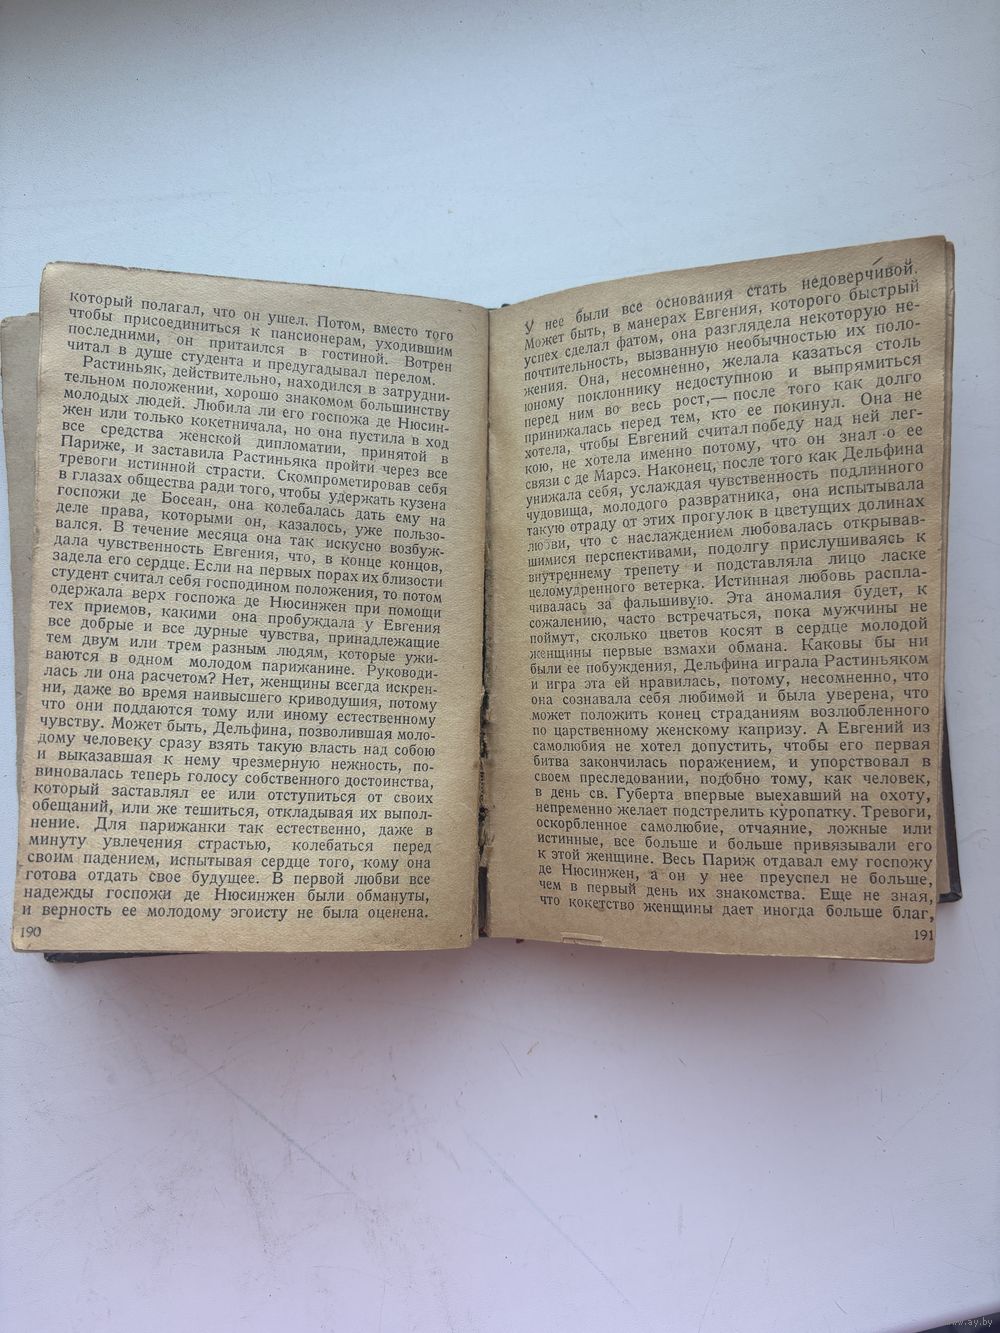 который полагал, что он ушел. Потом, вместо того
чтобы присоединиться к пансионерам, уходившим
последними, он притаился в гостиной. Вотрен
читал в душе студента и предугадывал перелом.
Растиньяк, действительно, находился в затрудни-
тельном положении, хорошо знакомом большинству
молодых людей. Любила ли его госпожа де Нюсин-
жен или только кокетничала, но она пустила в ход
все средства женской дипломатии, принятой в
Париже, и заставила Растиньяка пройти через все
тревоги истинной страсти. Скомпрометировав себя
в глазах общества ради того, чтобы удержать кузена
госпожи де Босеан, она колебалась дать ему на
деле права, которыми он, казалось, уже пользо-
вался. В течение месяца она так искусно возбуж-
дала чувственность Евгения, что, в конце концов,
задела его сердце. Если на первых порах их близости
студент считал себя господином положения, то потом
одержала верх госпожа де Нюсинжен при помощи
тех приемов, какими она пробуждала у Евгения
все добрые и все дурные чувства, принадлежащие
тем двум или трем разным людям, которые ужи-
ваются в одном молодом парижанине. Руководи-
лась ли она расчетом? Нет, женщины всегда искрен-
ни, даже во время наивысшего криводушия, потому
что они поддаются тому или иному естественному
чувству. Может быть, Дельфина, позволившая моло-
дому человеку сразу взять такую власть над собою
и выказавшая к нему чрезмерную нежность, по-
виновалась теперь голосу собственного достоинства,
который заставлял ее или отступиться от своих
обещаний, или же тешиться, откладывая их выпол-
нение. Для парижанки так естественно, даже в
минуту увлечения страстью, колебаться перед
своим падением, испытывая сердце того, кому она
готова отдать свое будущее. В первой любви все
надежды госпожи де Нюсинжен были обмануты,
и верность ее молодому эгоисту не была оценена.
190
У нее были все основания стать недоверчивой.
Может быть, в манерах Евгения, которого быстрый
успех сделал фатом, она разглядела некоторую не-
почтительность, вызванную необычностью их поло-
жения. Она, несомненно, желала казаться столь
юному поклоннику недоступною и выпрямиться
перед ним во весь рост,— после того как долго
принижалась перед тем, кто ее покинул. Она не
хотела, чтобы Евгений считал победу над ней лег-
кою, не хотела именно потому, что он знал о ее
связи с де Марсэ. Наконец, после того как Дельфина
унижала себя, услаждая чувственность подлинного
чудовища, молодого развратника, она испытывала
такую отраду от этих прогулок в цветущих долинах
любви, что с наслаждением любовалась открывав-
шимися перспективами, подолгу прислушиваясь к
внутреннему трепету и подставляла лицо ласке
целомудренного ветерка. Истинная любовь распла-
чивалась за фальшивую. Эта аномалия будет, к
сожалению, часто встречаться, пока мужчины не
поймут, сколько цветов косят в сердце молодой
женщины первые взмахи обмана. Каковы бы ни
были ее побуждения, Дельфина играла Растиньяком
и игра эта ей нравилась, потому, несомненно, что
она сознавала себя любимой и была уверена, что
может положить конец страданиям возлюбленного
по царственному женскому капризу. А Евгений из
самолюбия не хотел допустить, чтобы его первая
битва закончилась поражением, и упорствовал в
своем преследовании, подобно тому, как человек,
в день св. Губерта впервые выехавший на охоту,
непременно желает подстрелить куропатку. Тревоги,
оскорбленное самолюбие, отчаяние, ложные или
истинные, все больше и больше привязывали его
к этой женщине. Весь Париж отдавал ему госпожу
де Нюсинжен, а он у нее преуспел не больше,
чем в первый день их знакомства. Еще не зная,
что кокетство женщины дает иногда больше благ,
191
www.ay.by